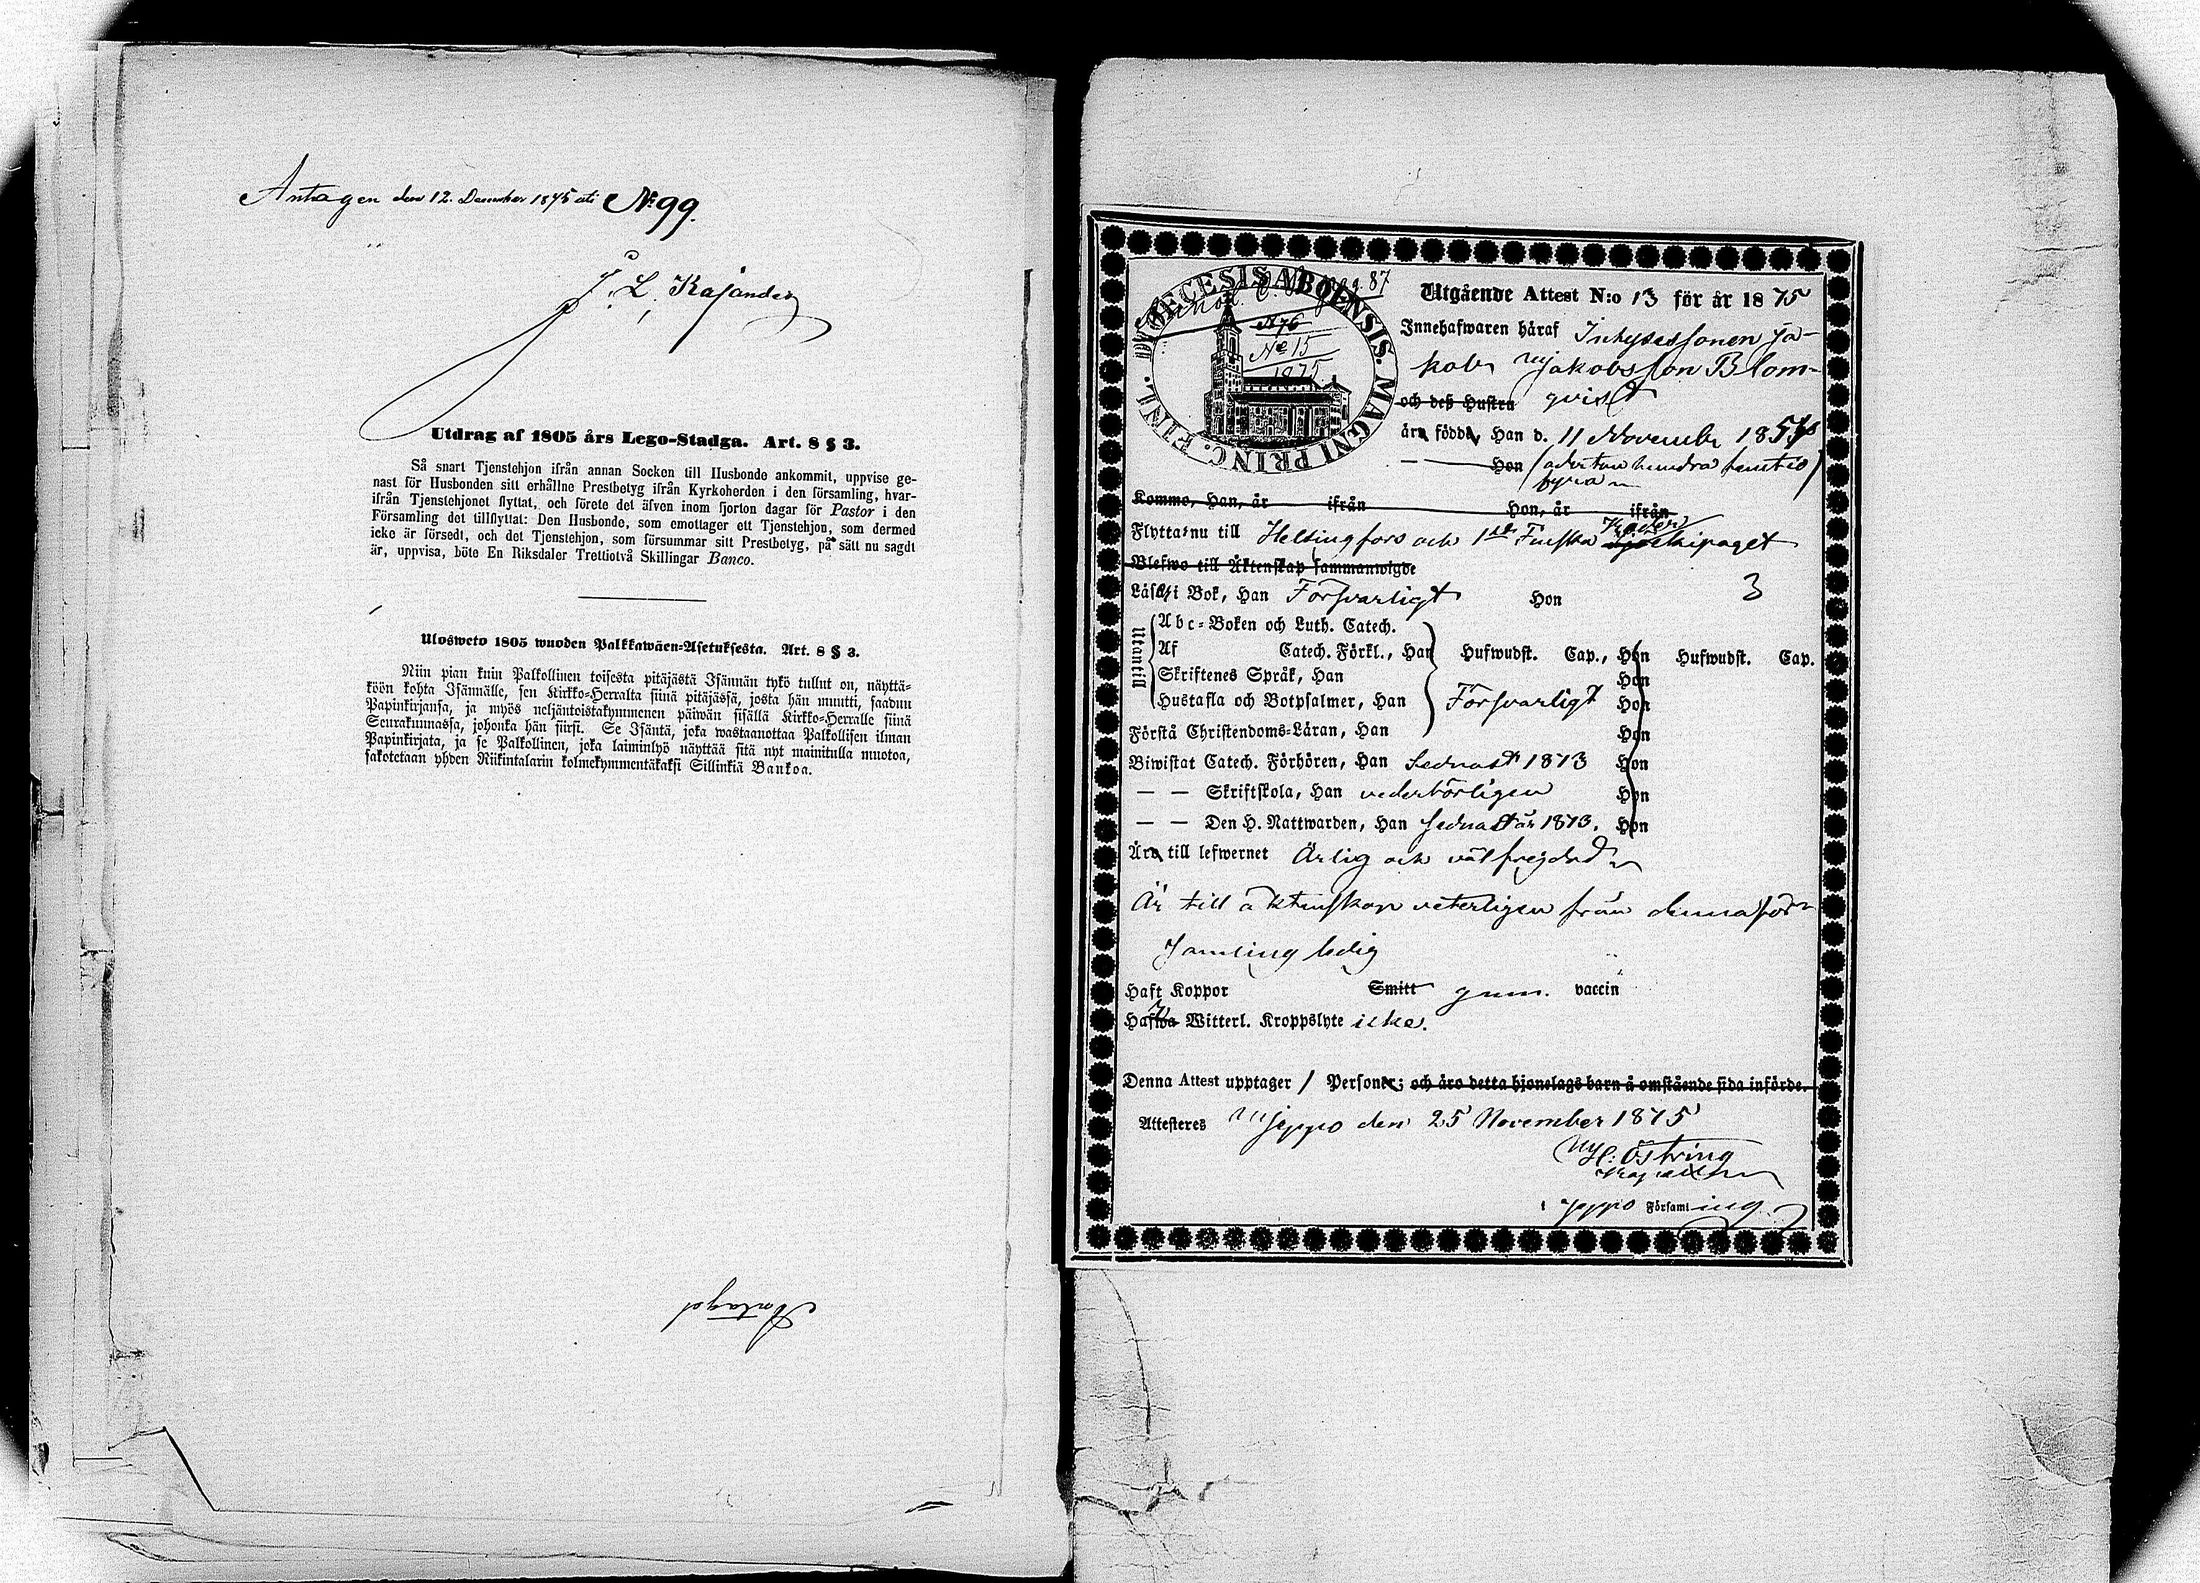 Antagen den 12. December 1875 uti No 99.
J. L. Kajander
Utdrag af 1805 års Lego-Stadga. Art. 8 § 3.
Så snart Tjenstehjon ifrån annan Socken till Husbonde ankommit, uppvise ge-
nast för Husbonden sitt erhållne Prestbetyg ifrån Kyrkoherden i den församling, hvar-
ifrån Tjenstehjonet flyttat, och förete det äfven inom fjorton dagar för Pastor i den
Församling det tillflyttat: Den Husbonde, som emottager ett Tjenstehjon, som dermed
icke är försedt, och det Tjenstehjon, som försummar sitt Prestbetyg, på sätt nu sagdt
är, uppvisa, böte En Riksdaler Trettiotvå Skillingar Banco.
Ulosweto 1805 wuoden Palkkawäen-Asetuksesta. Art. 8 § 3.
Niin pian kuin Palkollinen toisesta pitäjästä Isännän tykö tullut on, näyttä-
köön kohta Isännälle, sen Kirkko-Herralta siinä pitäjässä, josta hän muutti, saadun
Papinkirjansa, ja myös neljäntoistakymmenen päiwän sisällä Kirkko-Herralle siinä
Seurakunnassa, johonka hän siirsi. Se Isäntä, joka wastaanottaa Palkollisen ilman
Papinkirjata, ja se Palkollinen, joka laiminlyö näyttää sitä nyt mainitulla muotoa,
sakotetaan yhden Riikintalarin kolmekymmentäkaksi Sillinkiä Bankoa.
DIOECESIS ABOENSIS. MAGNI PRINC. FINL.
pag. 87
N 76
No 15
1875
Utgående Attest N:o 13 för år 1875
Innehafwaren häraf Inhysessonen Ja-
kob Jakobsson Blom-
och deß Hustru qvist
äro födde, Han d. 11 November 1854
Hon (adertonhundra femtio
fyra)
Komme, Han, år ifrån Hon, år ifrån
Flytta nu till Helsingfors och 1sta Finska Kader Sjöekipaget
Blefwo till Äktenskap sammanwigde
Läsa i Bok, Han Försvarligt Hon 3
Utantill
Abc-Boken och Luth. Catech.
Af Catech. Förkl., Han Hufwudst. Cap., Hon Hufwudst. Cap.
Skriftenes Språk, Han Hon
Hustafla och Botpsalmer, Han Försvarligt Hon
Förstå Christendoms-Läran, Han Hon
Biwistat Catech. Förhören, Han sednast 1873 Hon
— — Skriftskola, Han vederbörligen Hon
— — Den H. Nattwarden, Han sednast år 1873. Hon
Äro till lefwernet Ärlig och välfrejdad
Är till äktenskap veterligen från denna för-
samling ledig
Haft Koppor Smitt gnm. vaccin
Hafwa Witterl. Kroppslyte icke.
Denna Attest upptager 1 Person; och äro detta hjonelags barn å omstående sida införde.
Attesteres Jeppo den 25 November 1875
Östring
Kapellan
i Jeppo Församling.
Antaget